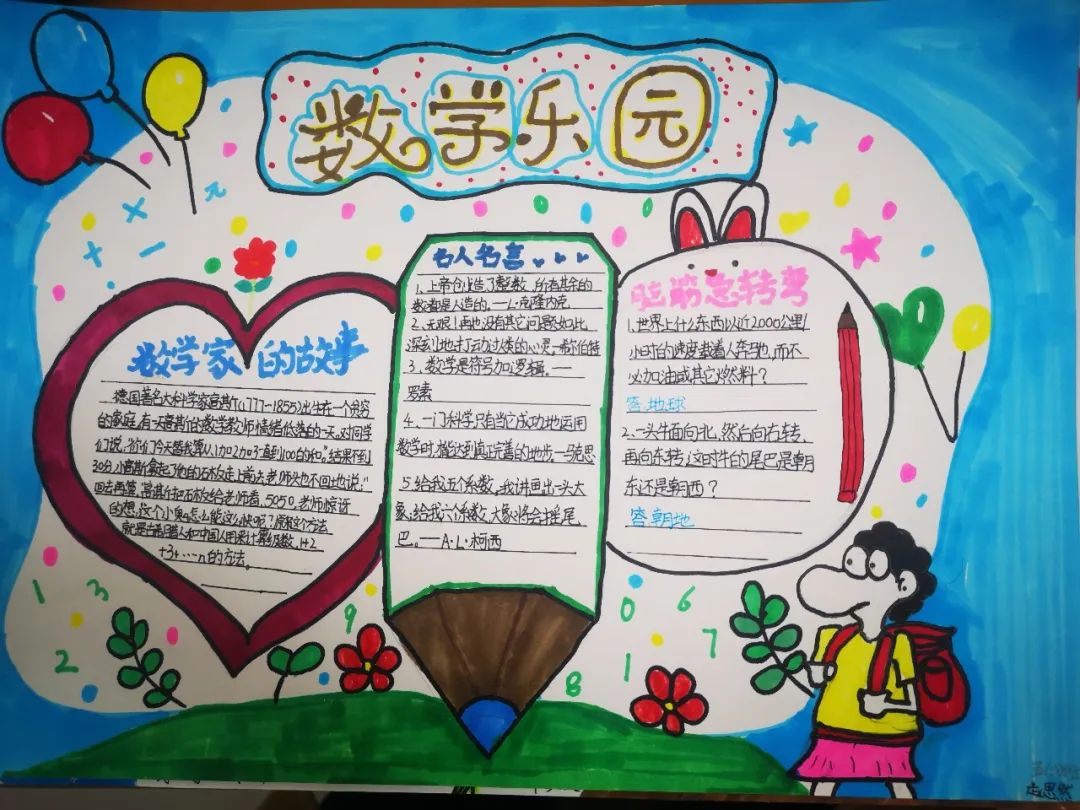 数学乐园
数学家的故事
德国著名大科学家高斯(1777-1855)出生在一个贫穷
的家庭,有一天高斯的数学教师情绪低落的一天。对同学
们说,"你们今天替我算从1加2加3一直到100的和。"结果不到
30分,小高斯拿起了他的石板走上前去。老师头也不回地说:"
回去再算,高斯把石板给老师看,5050。老师惊讶
的想,这个小鬼怎么能这么快呢?原来这个方法
就是古希腊人和中国人用来计算级数,1+2
+3+…n的方法。
名人名言
1、上帝创造了整数,所有其余的
数都是人造的。——L·克隆内克
2、无限!再也没有其它问题如此
深刻地打动过人类的心灵,希尔伯特
3、数学是符号加逻辑。——
罗素
4、一门科学只有当它成功地运用
数学时,才能达到真正完善的地步—马克思
5、给我五个系数,我讲画出一头大
象,给我六个系数,大象将会摇尾
巴。——A·L·柯西
脑筋急转弯
1、世界上什么东西以近2000公里/
小时的速度载着人奔驰,而不
必加油或其它燃料?
答:地球
2、一头牛面向北,然后向右转,
再向东转,这时牛的尾巴是朝
东还是朝西?
答:朝地
π
× + −
1 3 2
9 8
0 6 7 1
思然